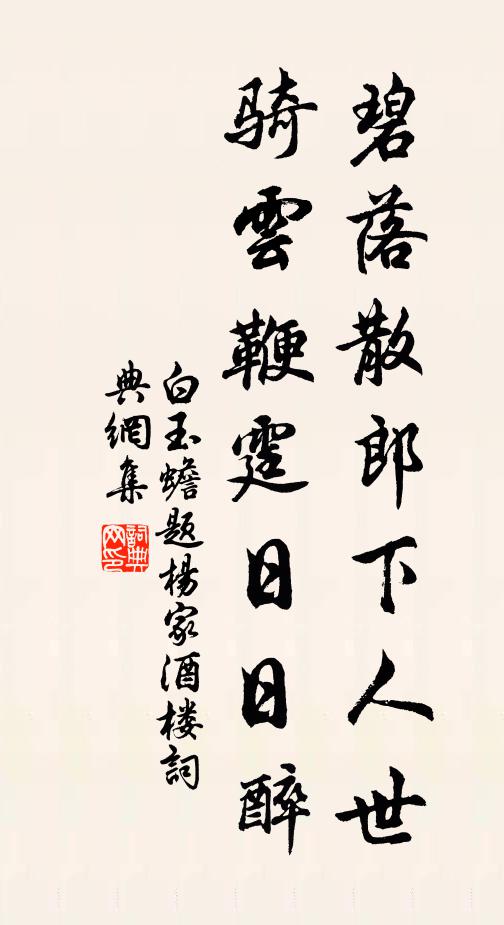 碧落散郎下人世
騎雲鞭霆日日醉
白玉蟾题楊家酒楼詞
典網集
詞典
网印